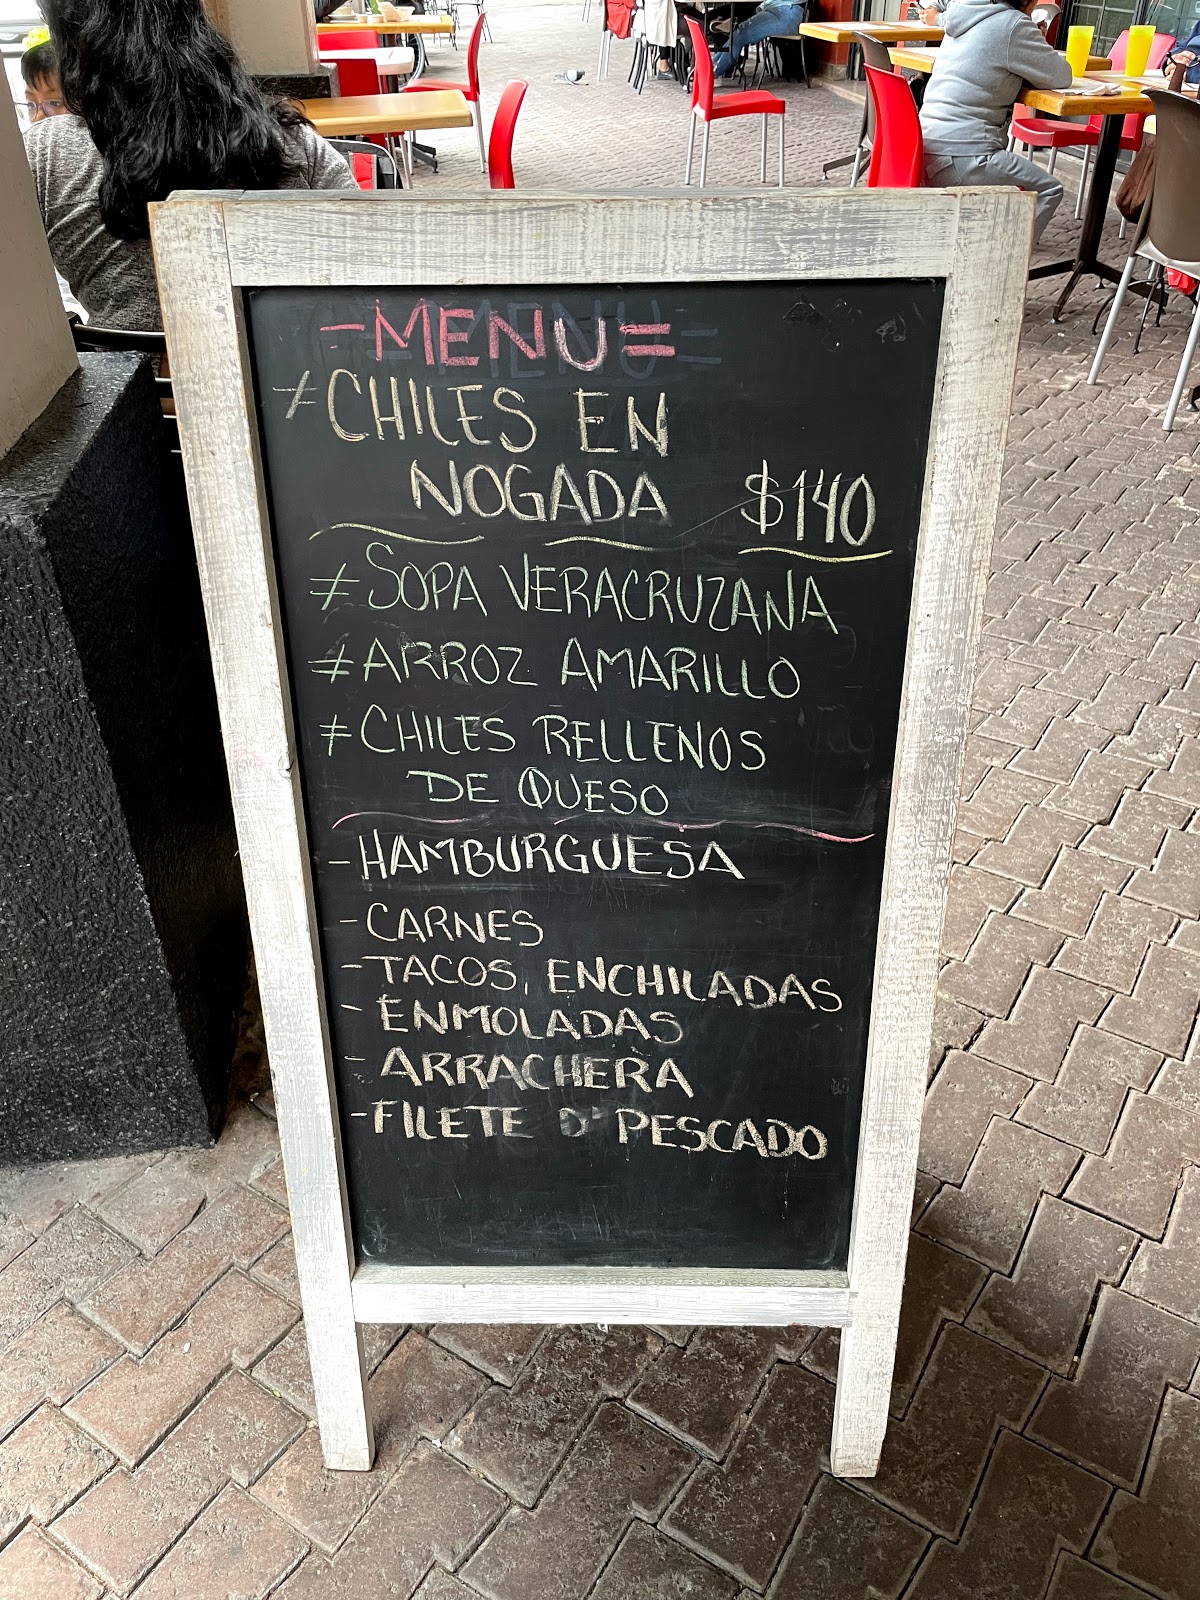 -MENU=
≠CHILES EN
NOGADA $140
≠SOPA VERACRUZANA
≠ARROZ AMARILLO
≠CHILES RELLENOS
DE QUESO
-HAMBURGUESA
-CARNES
-TACOS, ENCHILADAS
-ENMOLADAS
-ARRACHERA
-FILETE D' PESCADO